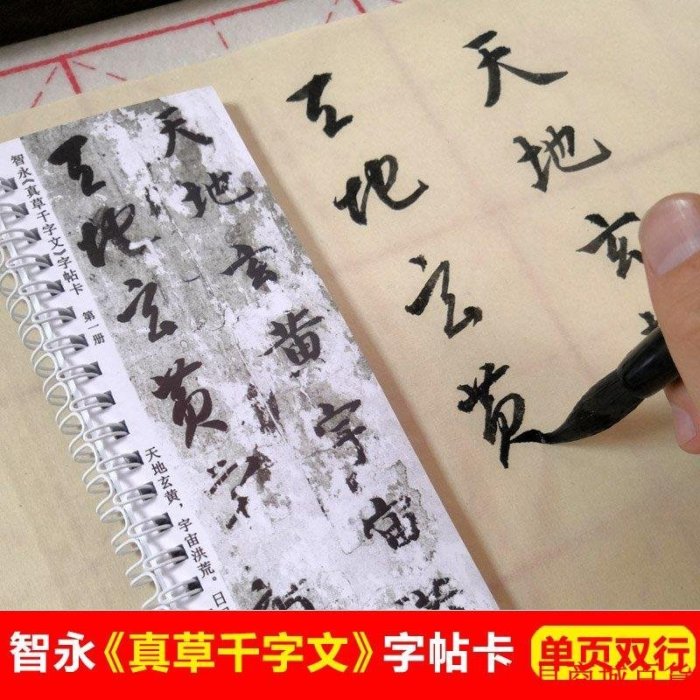 天地玄
天地玄黄
天地玄黄宇宙
天地玄黄宇
智永《真草千字文》字帖卡 第一册
天地玄黄，宇宙洪荒。日
智永《真草千字文》字帖卡
单页双行
商城百貨